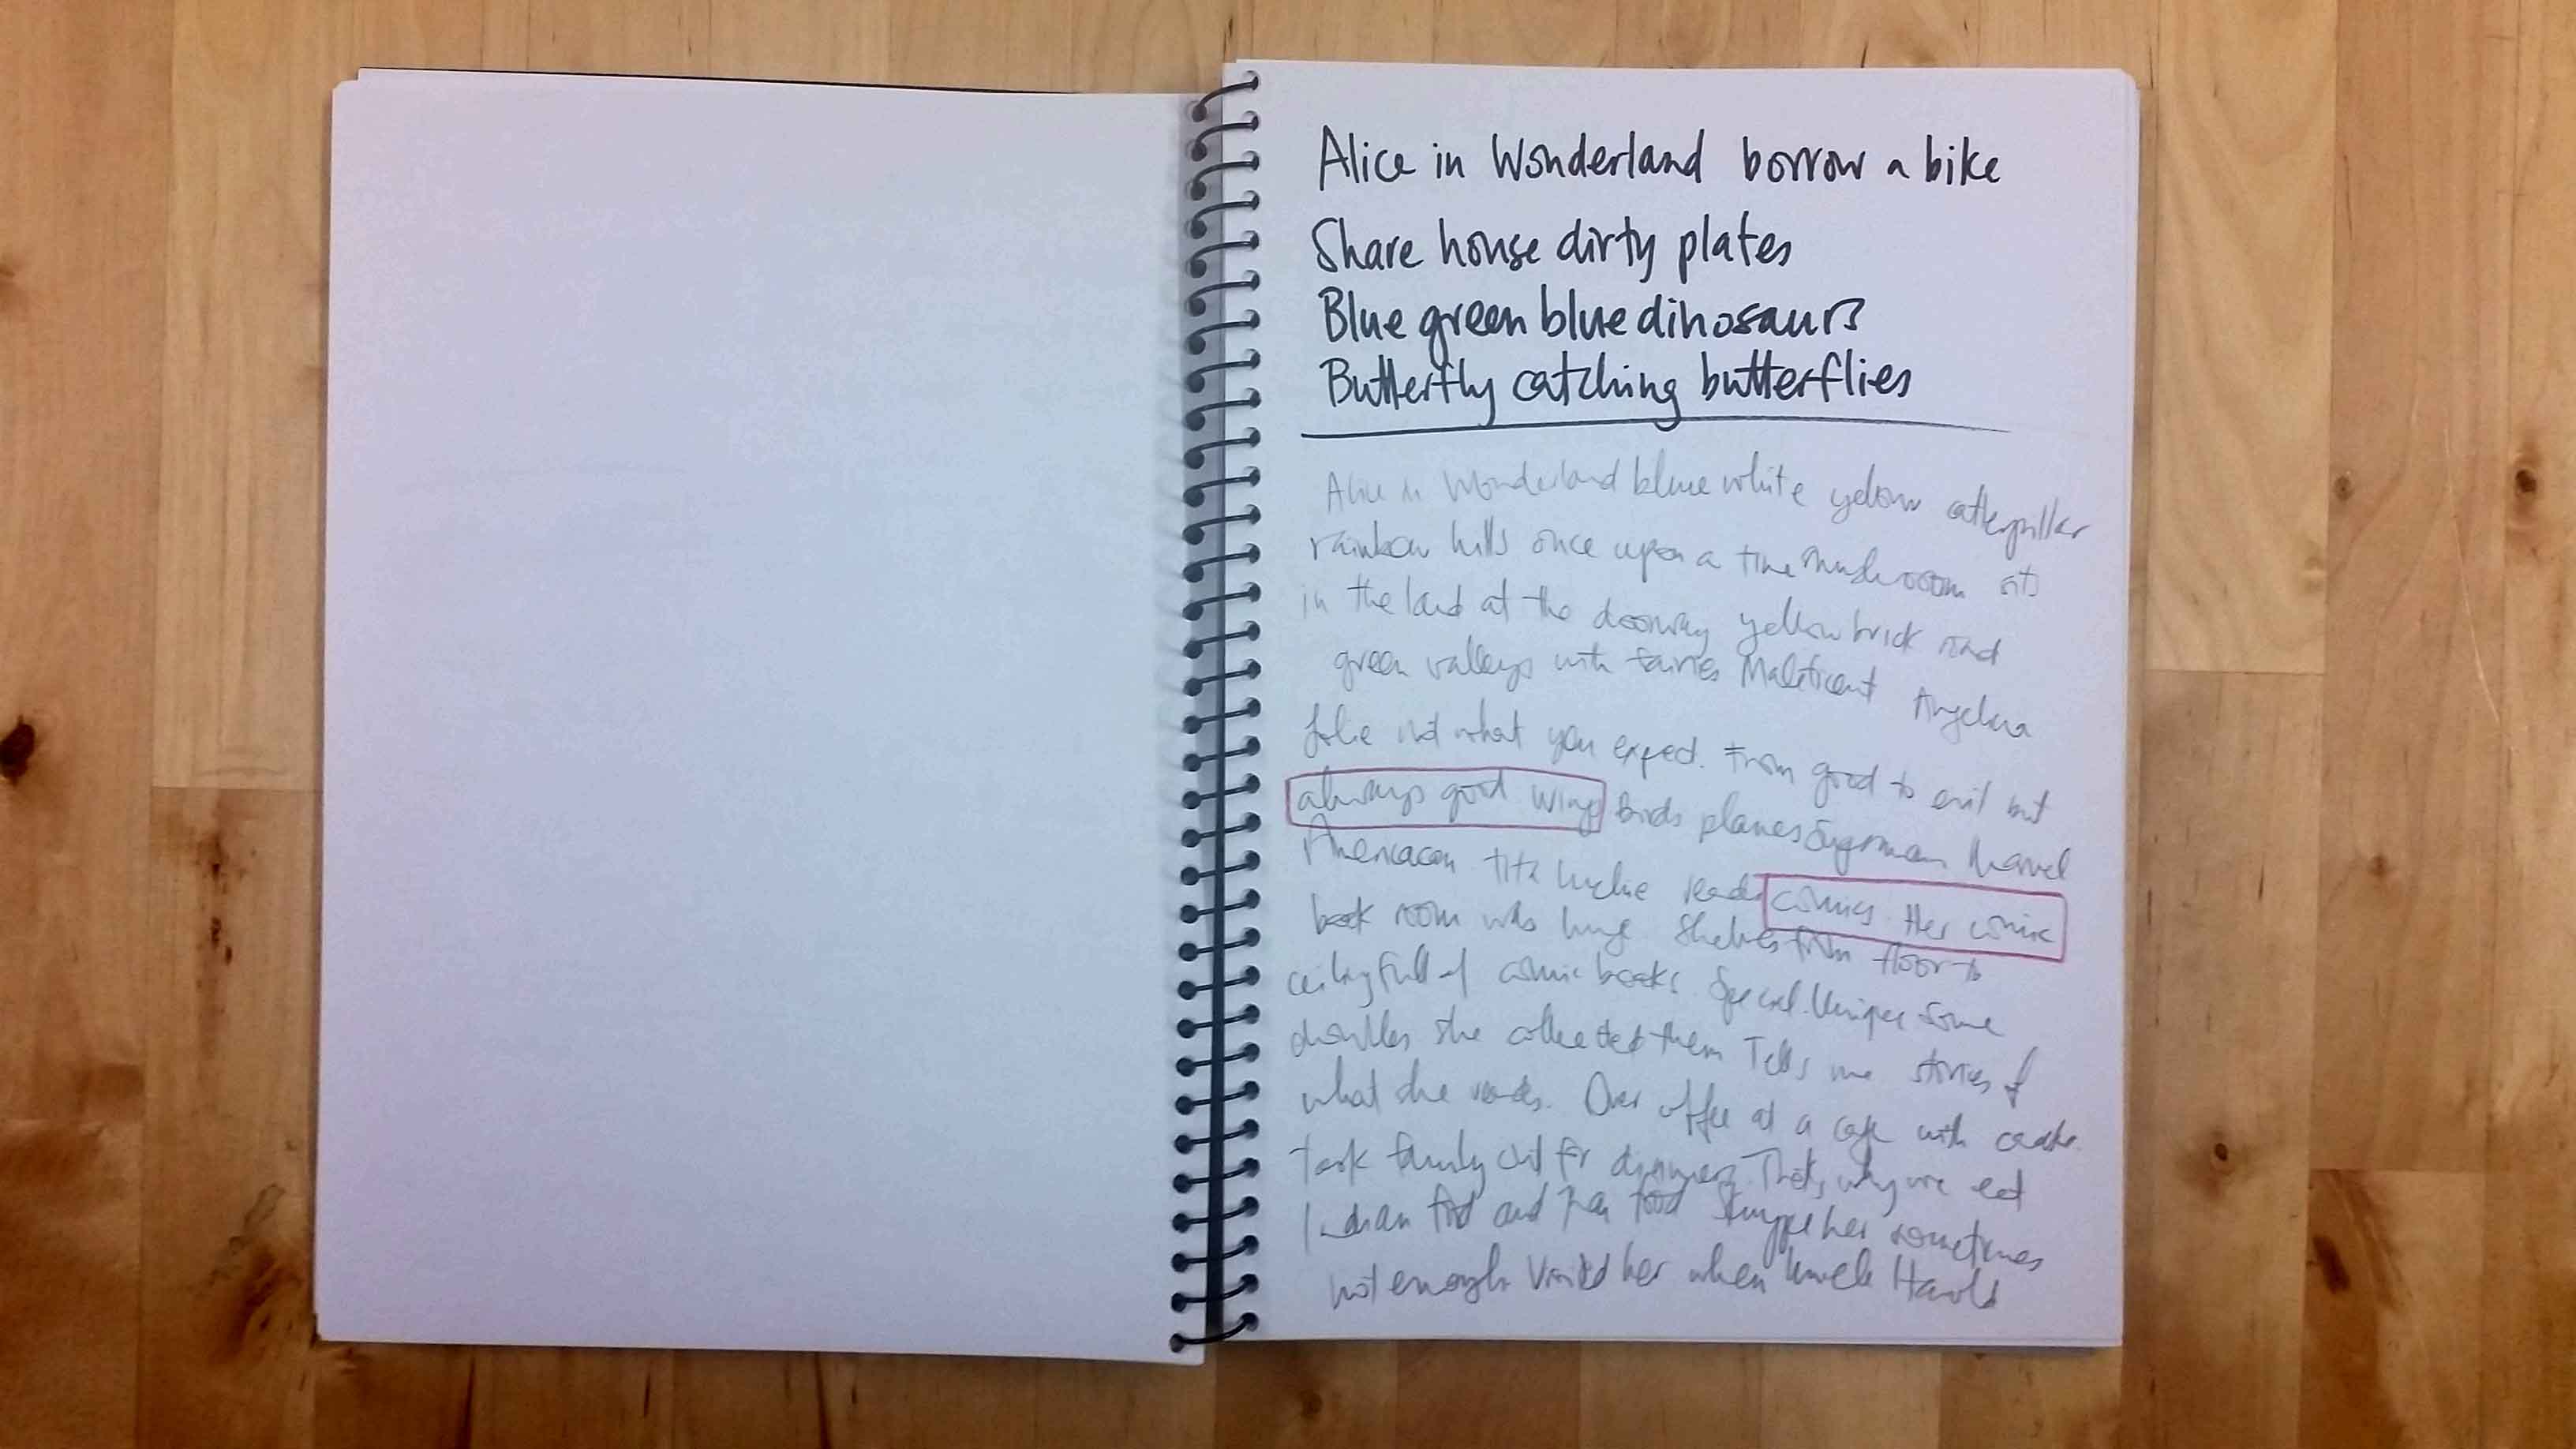 Alice in Wonderland borrow a bike
Share house dirty plates
Blue green blue dinosaurs
Butterfly catching butterflies
Alice in Wonderland blue white yellow catterpillar
rainbow hills once upon a time mushroom sits
in the land at the doorway yellow brick road
green valleys with fairies Maleficent Angelina
Jolie not what you expect. From good to evil but
always good wings Birds planes Marvel
reads comics. Her comic
book room was huge shelves from floor to
ceiling full of comic books. Special. Unique some
doubles she collected them Tells me stories of
what she reads. Over coffee at a cafe with
Took family out for dinners. That's why we eat
Indian food and food her sometimes
not enough. Visited her when Uncle Harold